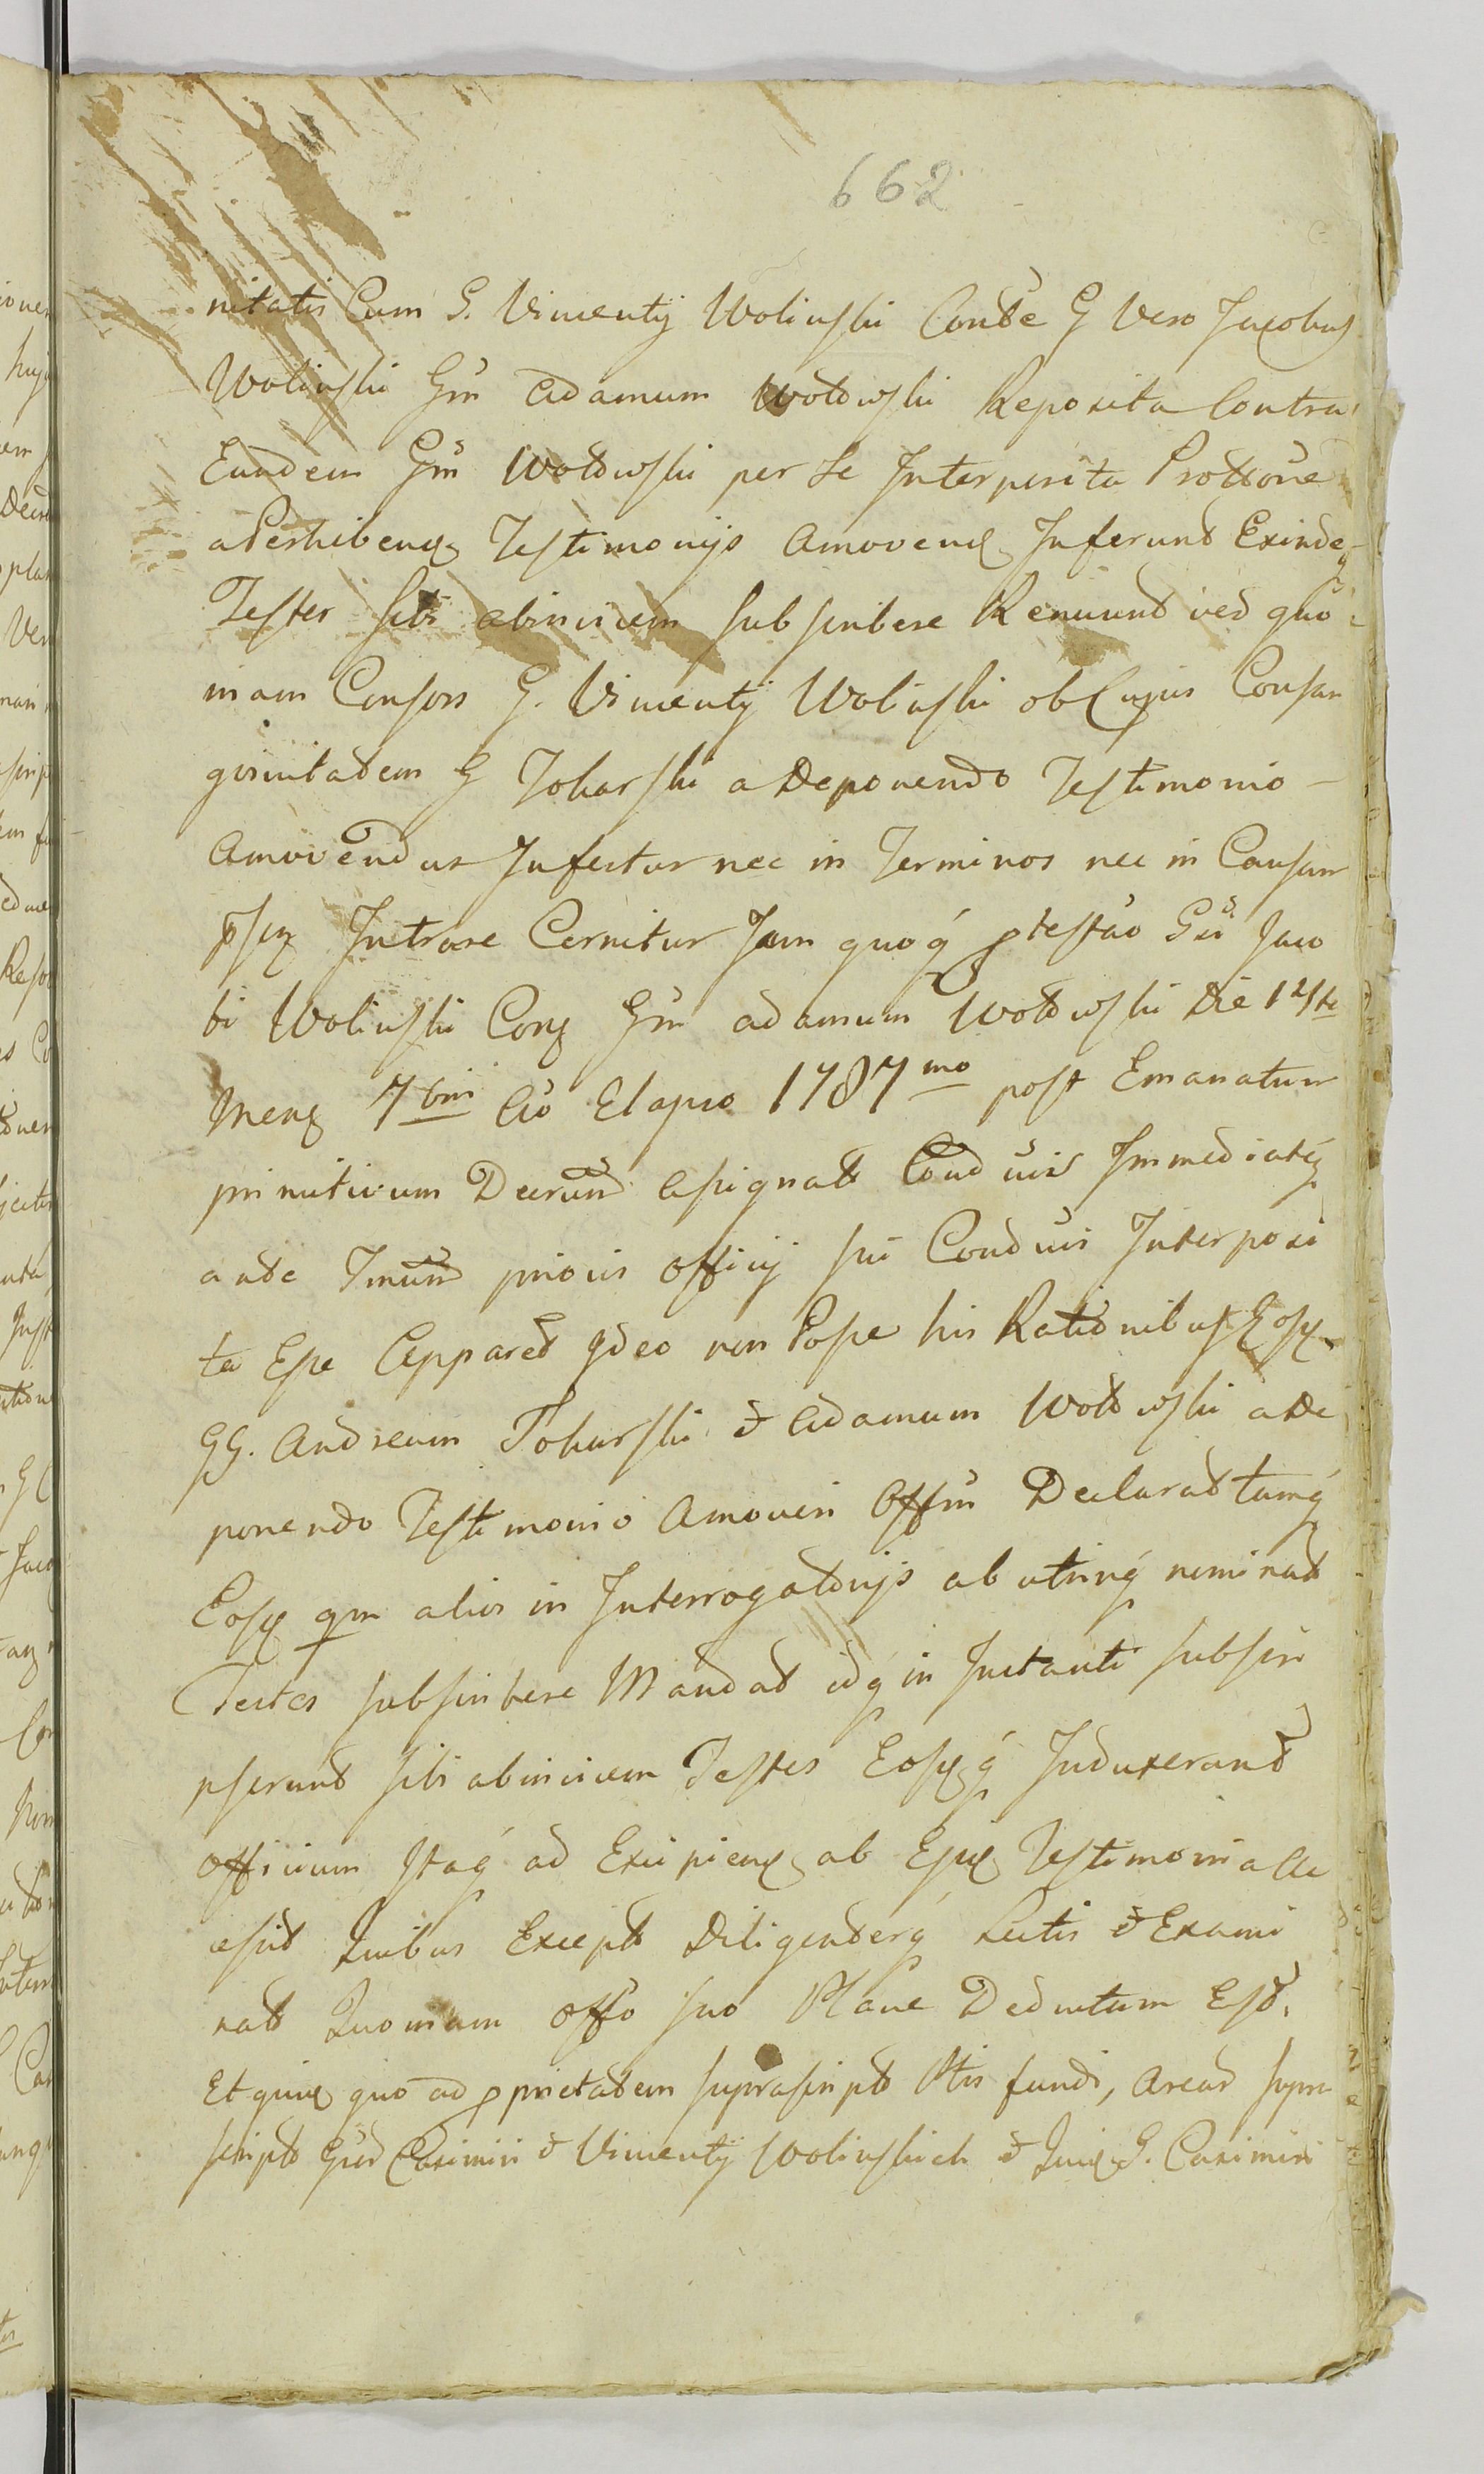 662
nitatis Cum G. Vincentij Woliński Conste G Vero Jacobus
Woliński Gm̃ Adamum Wołowski Reposita Contra
Eundem Gm̃ Wołowski per se Interposita Prottõne
a Perhibenđ Testimonijs Amovenđ Inferunt Exinde
Testes sibi abinvicem subscribere Renuunt sed quo
niam Consors G. Vincentij Woliński ob Cujus Consan
gvinitatem G Tokarski a Deponendo Testimonio
Amovendus Infertur nec in Terminos nec in Causam
Intrare Cernitur Jam quoq́ ptestao Gsi Jaco
bi Woliński Gm̃ Adamum Wołowski Die 12
Mens 7bris Elapso 1787mo post Emanatum
primitivum Decrum Asignatt Cond vis Immediate
ante Tmum prioris Officij sui Cond vis Interposi
ta Esse Apparet non Posse his Rationibus Eosđ
GG. Andream Tokarski et Adamum Wołowski a De
ponendo Testimonio Amoveri Offm̃ Declarat tamq́
Eosđ qm alios in Interrogatorijs ab utrinq́ nominatt
Testes subscribere Mandat idq́ in Instanti subscri
pserunt sibi abinvicem Testes Eosđq́ Induxerunt
Officium Itaq́ ad Excipienđ ab Testimonia Ac
cesit Quibus Exceptt Diligenterq́ Lectis et Exami
natt Quoniam Offo suo Plane Deductum Est.
Et quidem quo ad pprietatem suprascriptt Ptis fundi, Areae supra
scriptt Casimiri et Vincentij Wolińskich et G. Casimiri